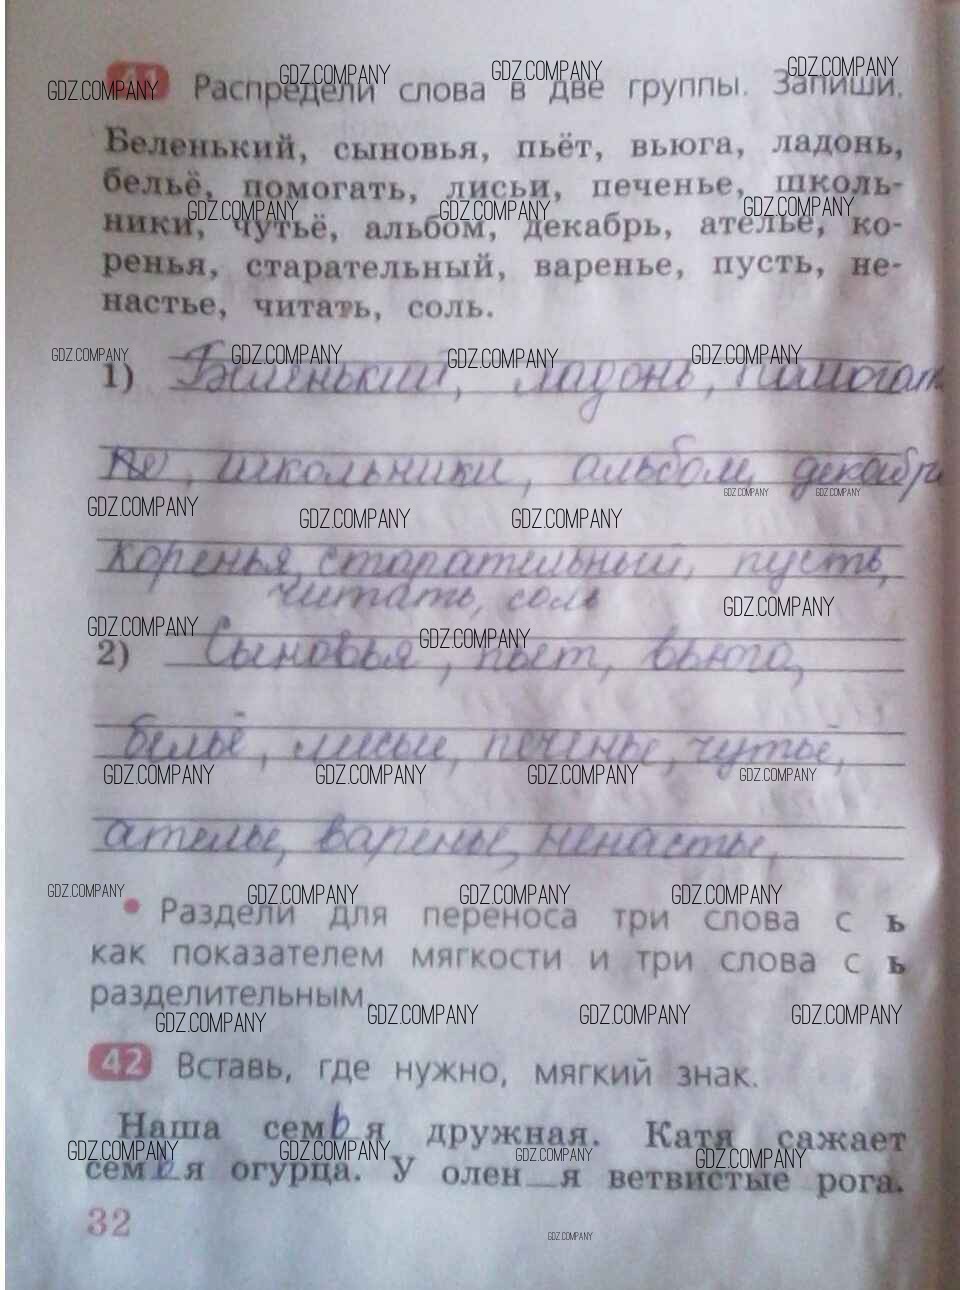 41 Распредели слова в две группы. Запиши.
Беленький, сыновья, пьёт, вьюга, ладонь,
бельё, помогать, лисьи, печенье, школь-
ники, чутьё, альбом, декабрь, ателье, ко-
ренья, старательный, варенье, пусть, не-
настье, читать, соль.
1) Беленький, ладонь, помогат
школьники, альбом, декабрь
коренья, старательный, пусть,
читать, соль
2) Сыновья, пьёт, вьюга,
бельё, лисьи, печенье, чутьё,
ателье, варенье, ненастье,
• Раздели для переноса три слова с ь
как показателем мягкости и три слова с ь
разделительным.
42 Вставь, где нужно, мягкий знак.
Наша семья дружная. Катя сажает
семья огурца. У олен_я ветвистые рога.
32
GDZ.COMPANY